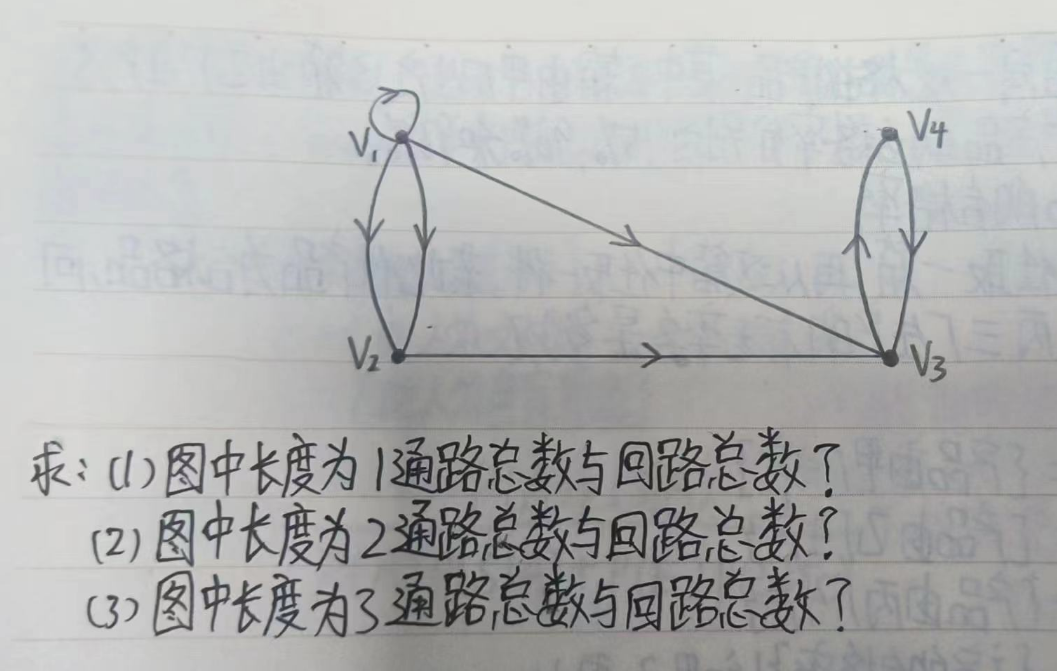 V₁
V₄
V₂
V₃
求：(1)图中长度为1通路总数与回路总数？
(2)图中长度为2通路总数与回路总数？
(3)图中长度为3通路总数与回路总数？